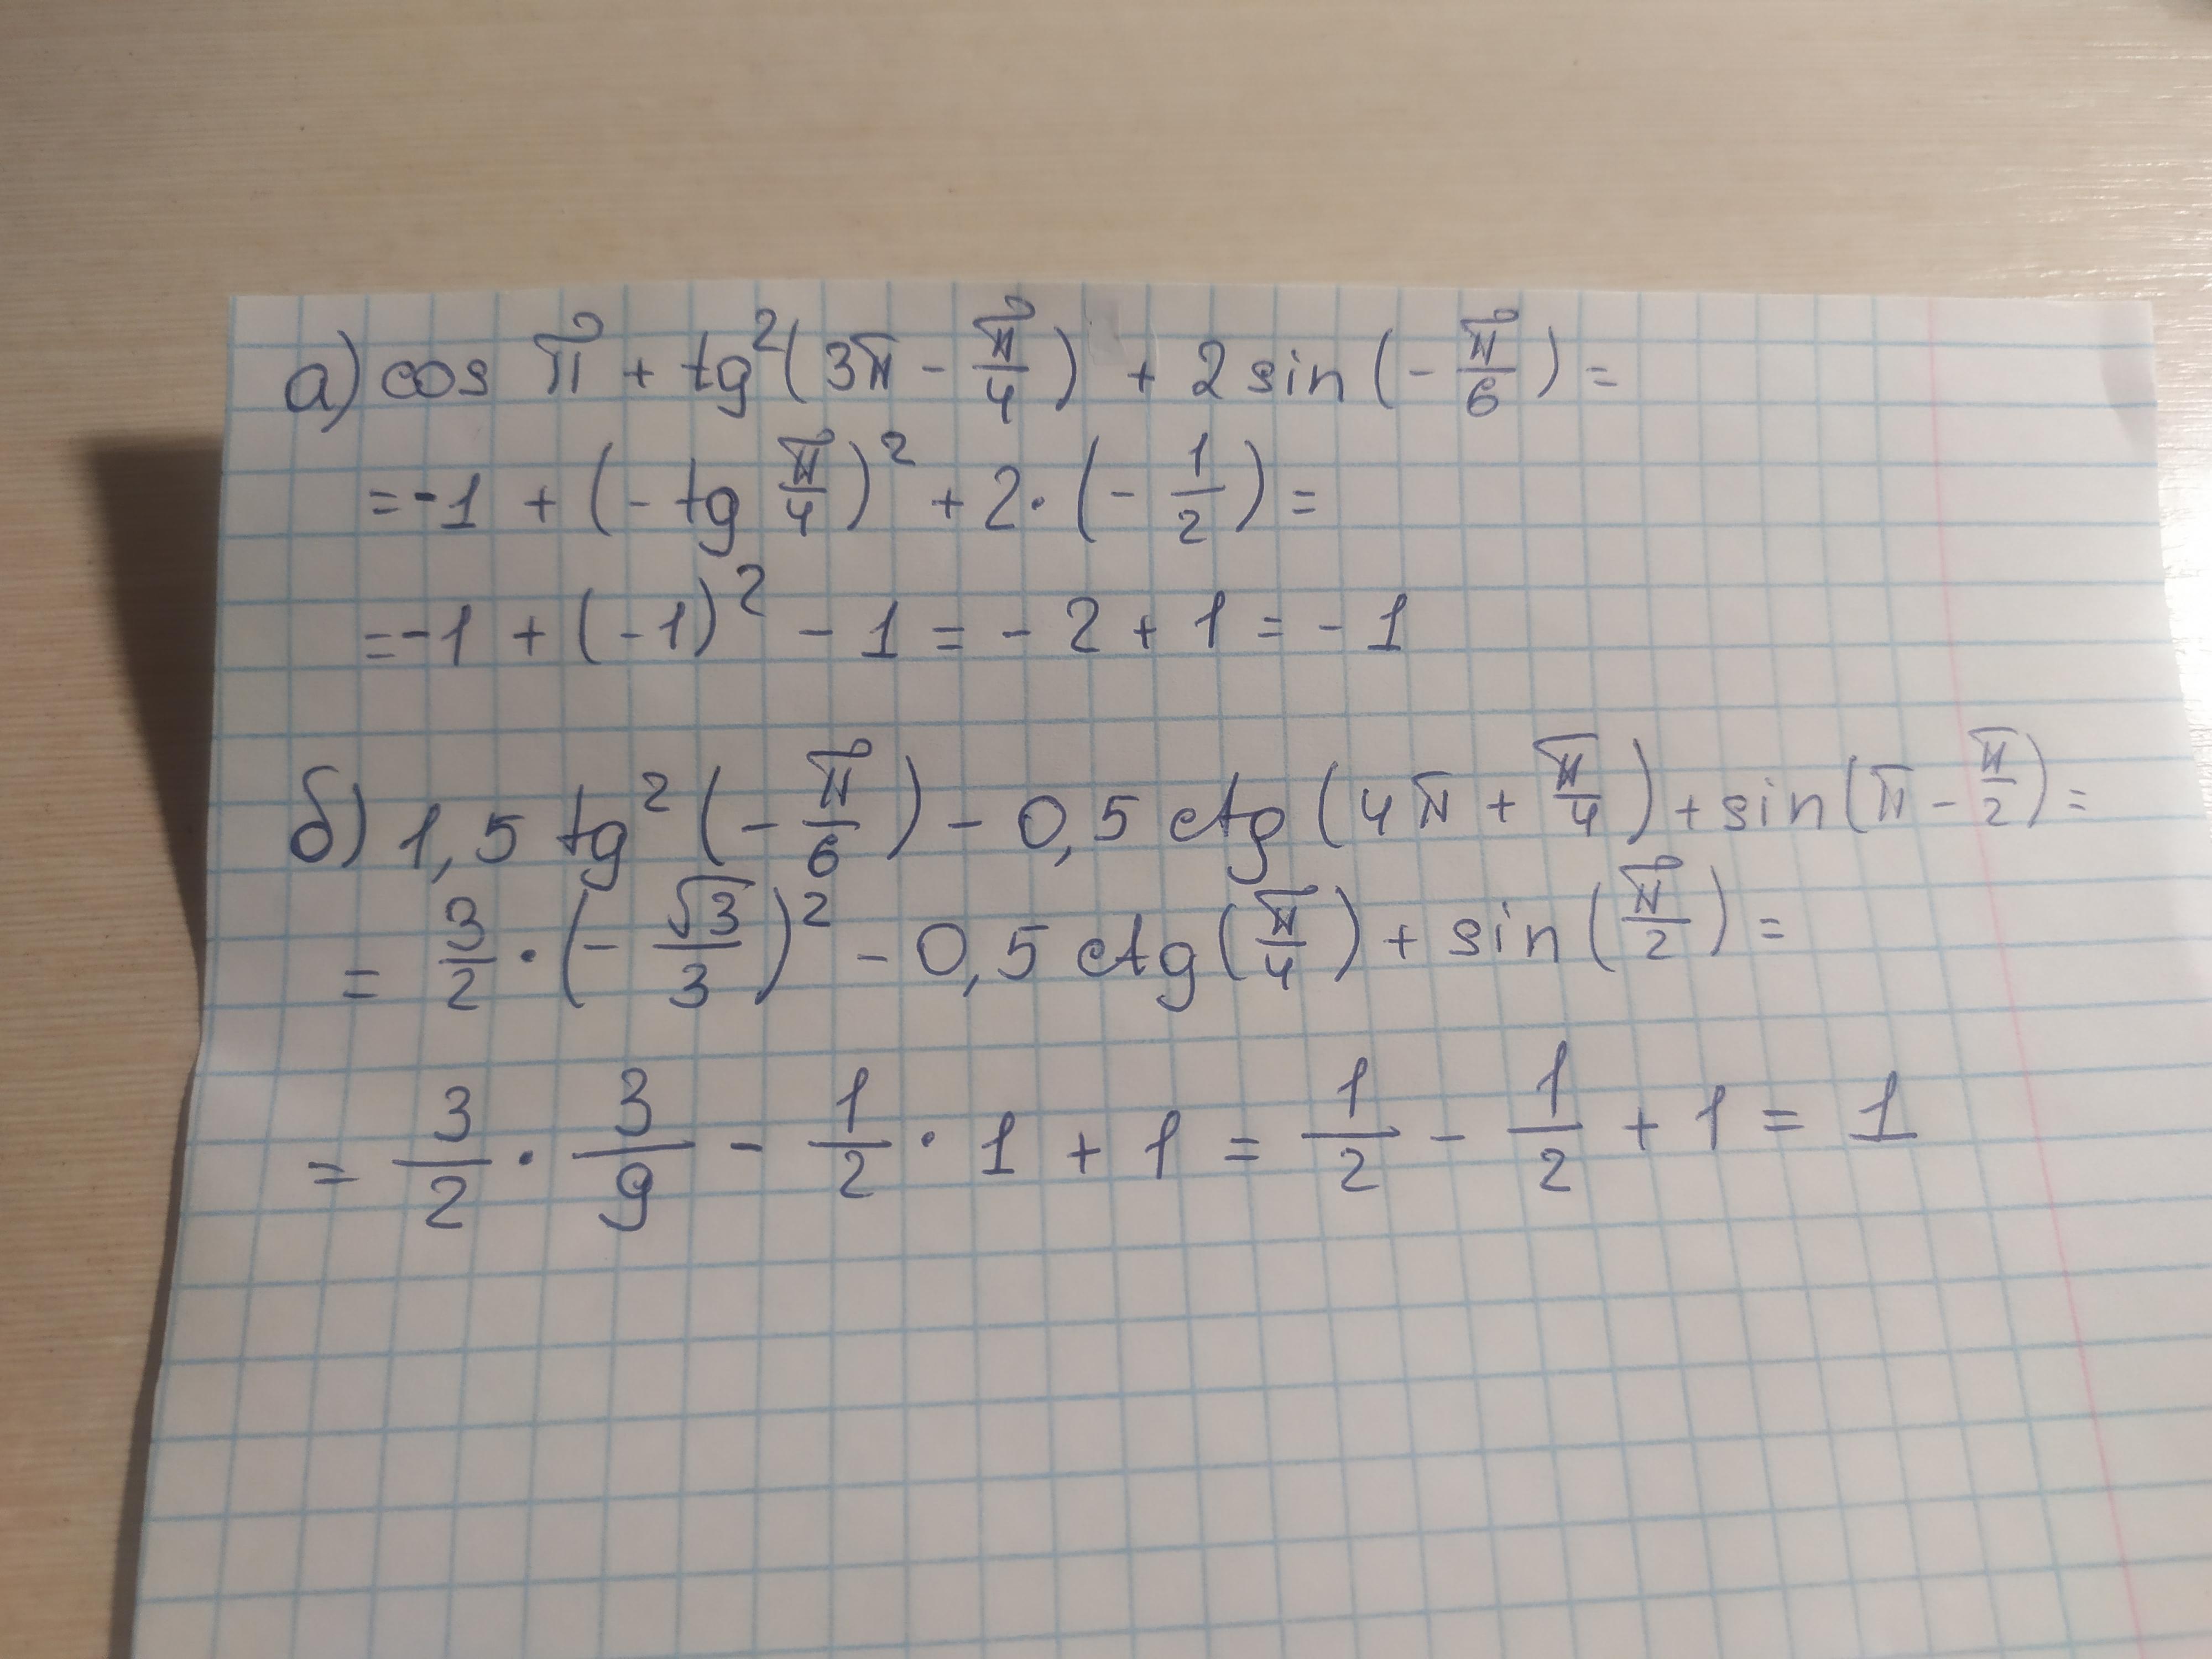 а) cos π + tg²(3π - π/4) + 2 sin(-π/6) =
= -1 + (-tg π/4)² + 2·(-1/2) =
= -1 + (-1)² - 1 = -2 + 1 = -1
б) 1,5 tg²(-π/6) - 0,5 ctg(4π + π/4) + sin(π - π/2) =
= 3/2 · (-√3/3)² - 0,5 ctg(π/4) + sin(π/2) =
= 3/2 · 3/9 - 1/2 · 1 + 1 = 1/2 - 1/2 + 1 = 1